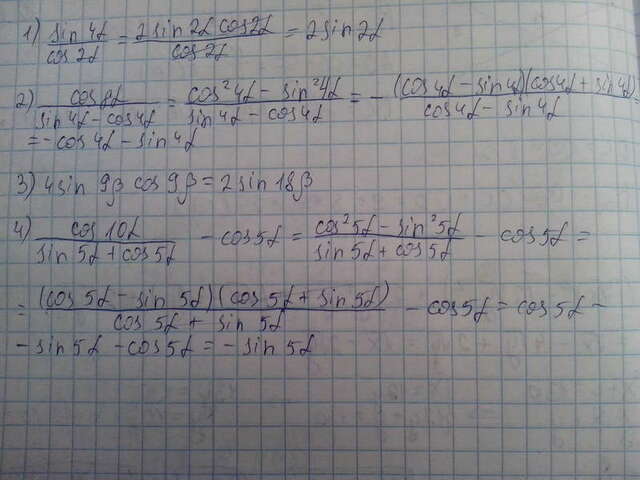 1) sin 4α / cos 2α = 2 sin 2α cos 2α / cos 2α = 2 sin 2α
2) cos 8α / sin 4α - cos 4α = cos² 4α - sin² 4α / sin 4α - cos 4α = - (cos 4α - sin 4α)(cos 4α + sin 4α) / cos 4α - sin 4α
= - cos 4α - sin 4α
3) 4 sin 9β cos 9β = 2 sin 18β
4) cos 10α / sin 5α + cos 5α - cos 5α = cos² 5α - sin² 5α / sin 5α + cos 5α - cos 5α =
= (cos 5α - sin 5α)(cos 5α + sin 5α) / cos 5α + sin 5α - cos 5α = cos 5α -
- sin 5α - cos 5α = - sin 5α